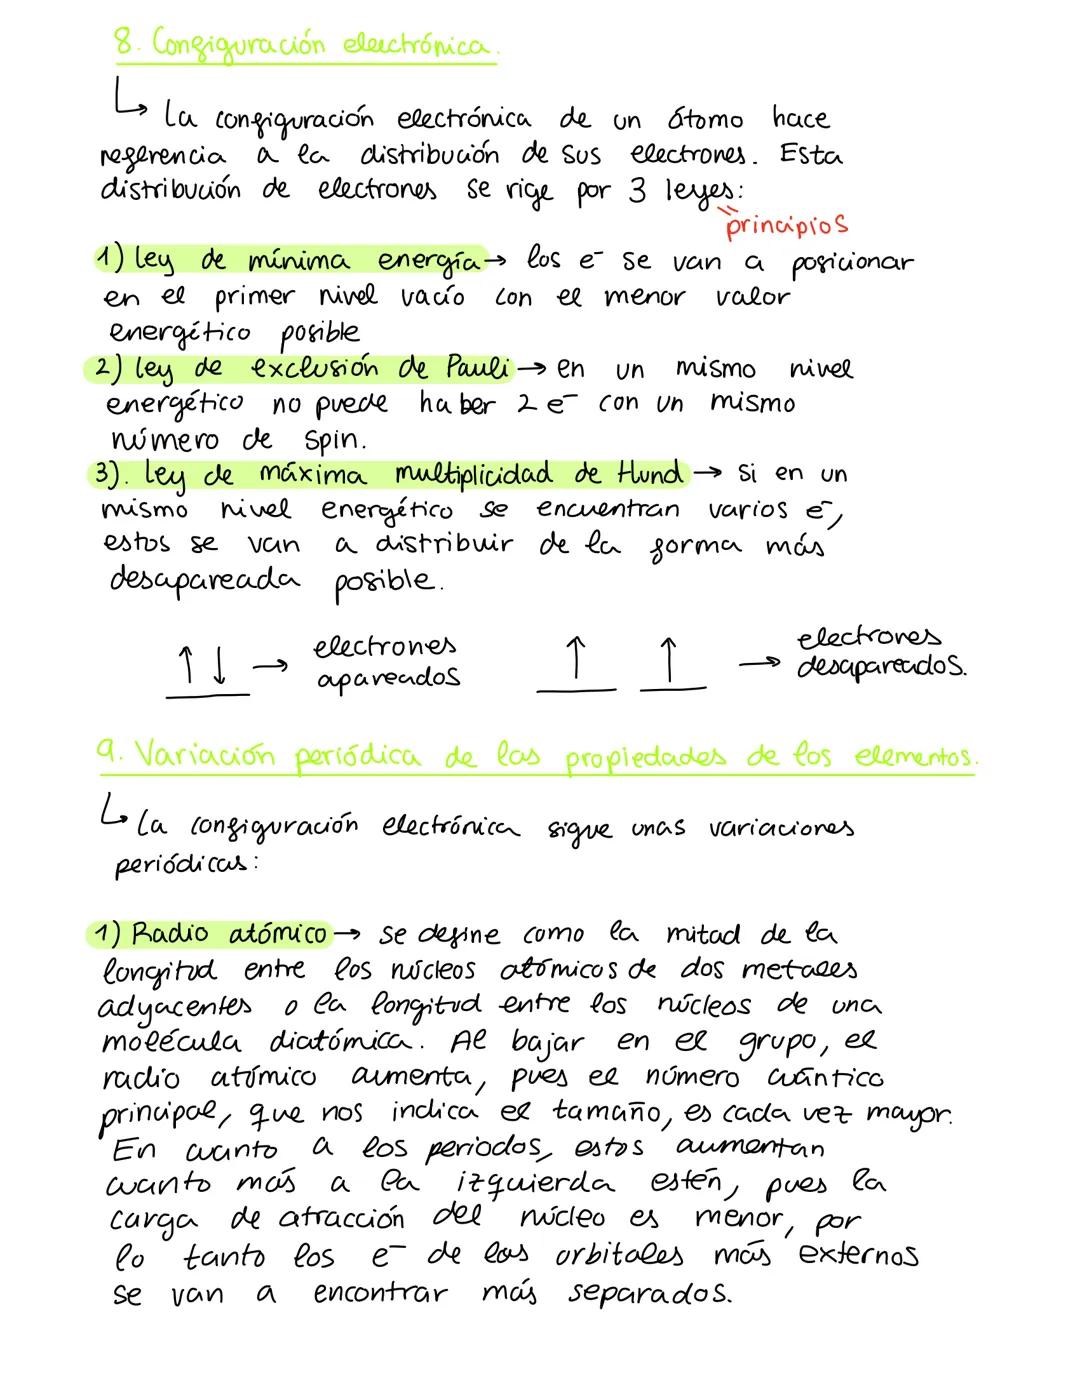 8. Configuración electrónica.
↳ La configuración electrónica de un átomo hace
referencia a la distribución de sus electrones. Esta
distribución de electrones se rige por 3 leyes:
principios
1) ley de mínima energía → los e⁻ se van a posicionar
en el primer nivel vacío con el menor valor
energético posible
2) ley de exclusión de Pauli → en un mismo nivel
energético no puede haber 2 e⁻ con un mismo
número de spin.
3). ley de máxima multiplicidad de Hund → si en un
mismo nivel energético se encuentran varios e⁻,
estos se van a distribuir de la forma más
desapareada posible.
↑↓ → electrones
apareados
↑ ↑ → electrones
desapareados.
9. Variación periódica de las propiedades de los elementos.
↳ La configuración electrónica sigue unas variaciones
periódicas:
1) Radio atómico → se define como la mitad de la
longitud entre los núcleos atómicos de dos metales
adyacentes o la longitud entre los núcleos de una
molécula diatómica. Al bajar en el grupo, el
radio atómico aumenta, pues el número cuántico
principal, que nos indica el tamaño, es cada vez mayor.
En cuanto a los periodos, estos aumentan
cuanto más a la izquierda estén, pues la
carga de atracción del núcleo es menor, por
lo tanto los e⁻ de los orbitales más externos
se van a encontrar más separados.